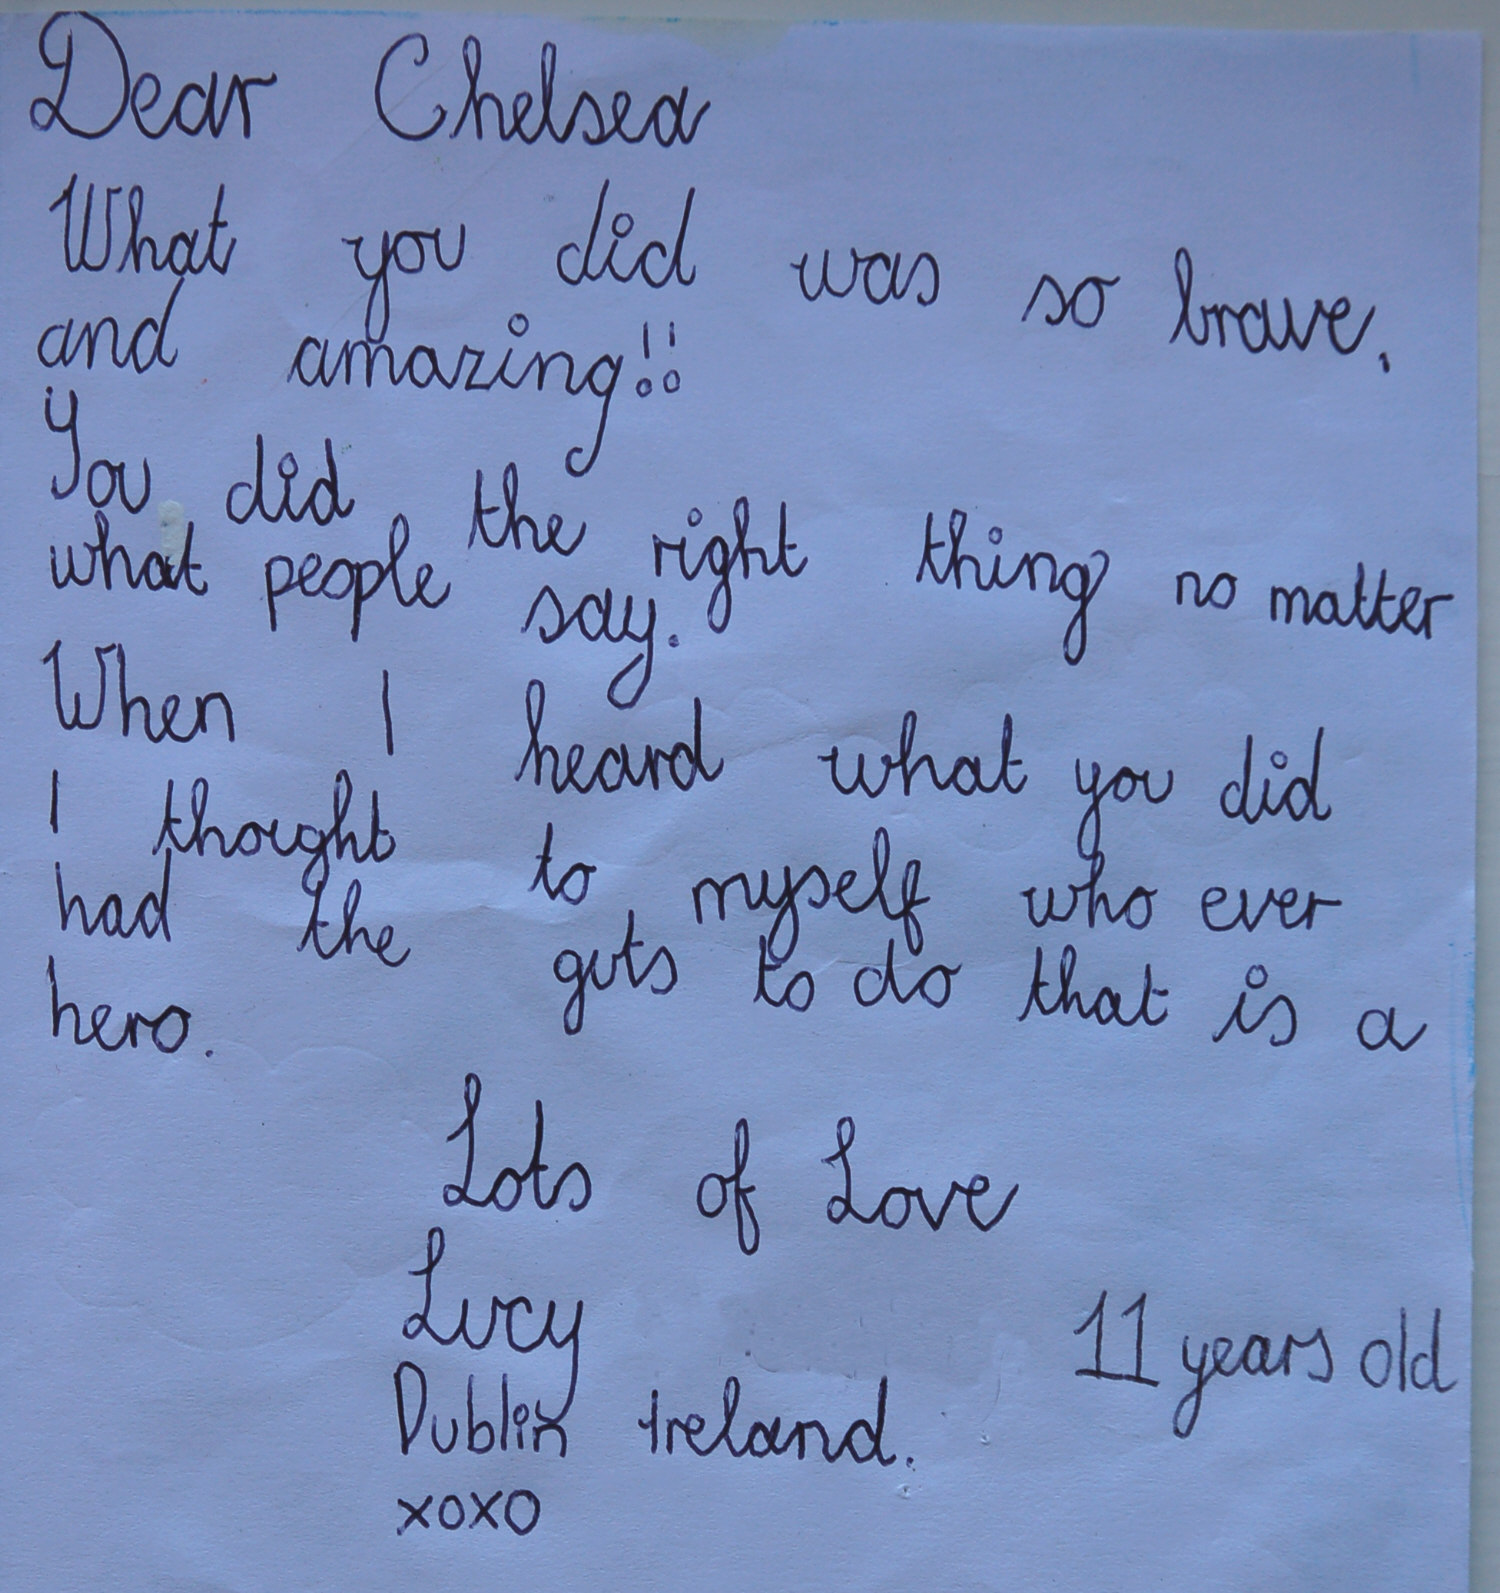 Dear Chelsea
What you did was so brave,
and amazing!!
You did the right thing no matter
what people say.
When I heard what you did
I thought to myself who ever
had the guts to do that is a
hero.
Lots of Love
Lucy
11 years old
Dublin Ireland.
xoxo